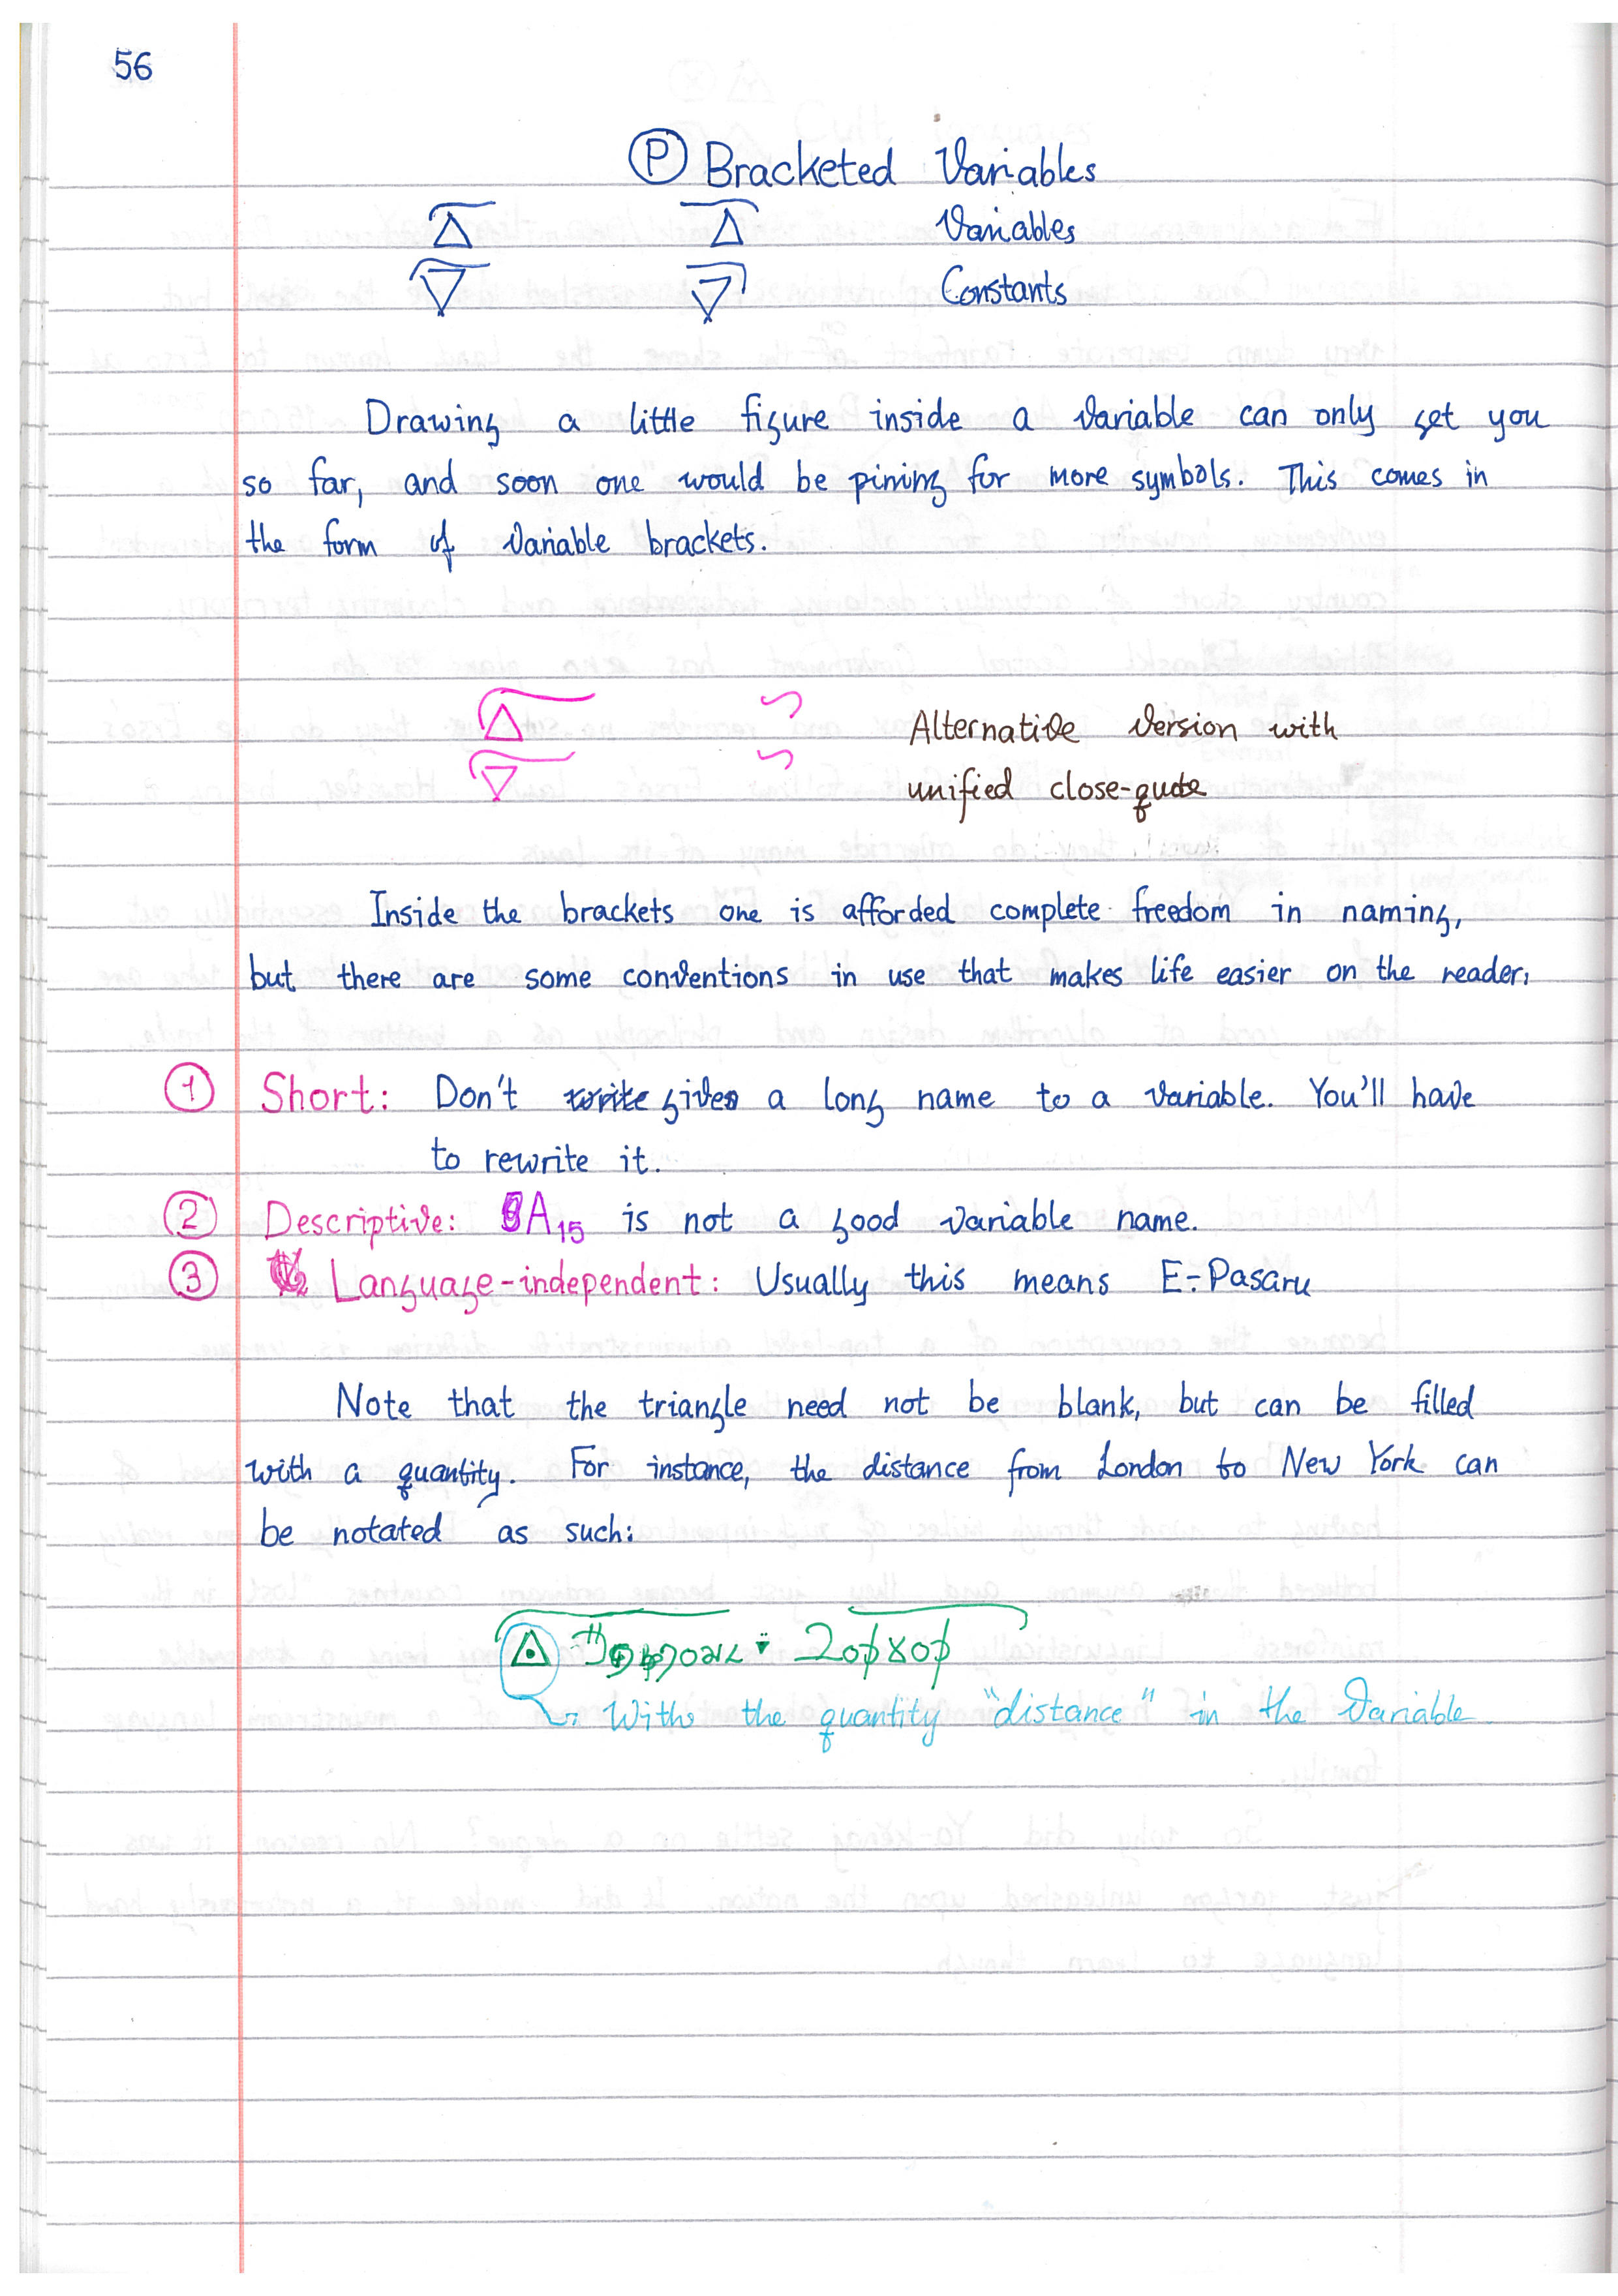 56
Ⓟ Bracketed Variables
△ △ Variables
▽ ▽ Constants
Drawing a little figure inside a variable can only get you
so far, and soon one would be pining for more symbols. This comes in
the form of variable brackets.
△ Alternative version with
▽ unified close-quote
Inside the brackets one is afforded complete freedom in naming,
but there are some conventions in use that makes life easier on the reader:
① Short: Don't give a long name to a variable. You'll have
to rewrite it.
② Descriptive: A₁₅ is not a good variable name.
③ Language-independent: Usually this means E-Pasaru
Note that the triangle need not be blank, but can be filled
with a quantity. For instance, the distance from London to New York can
be notated as such:
With the quantity "distance" in the variable